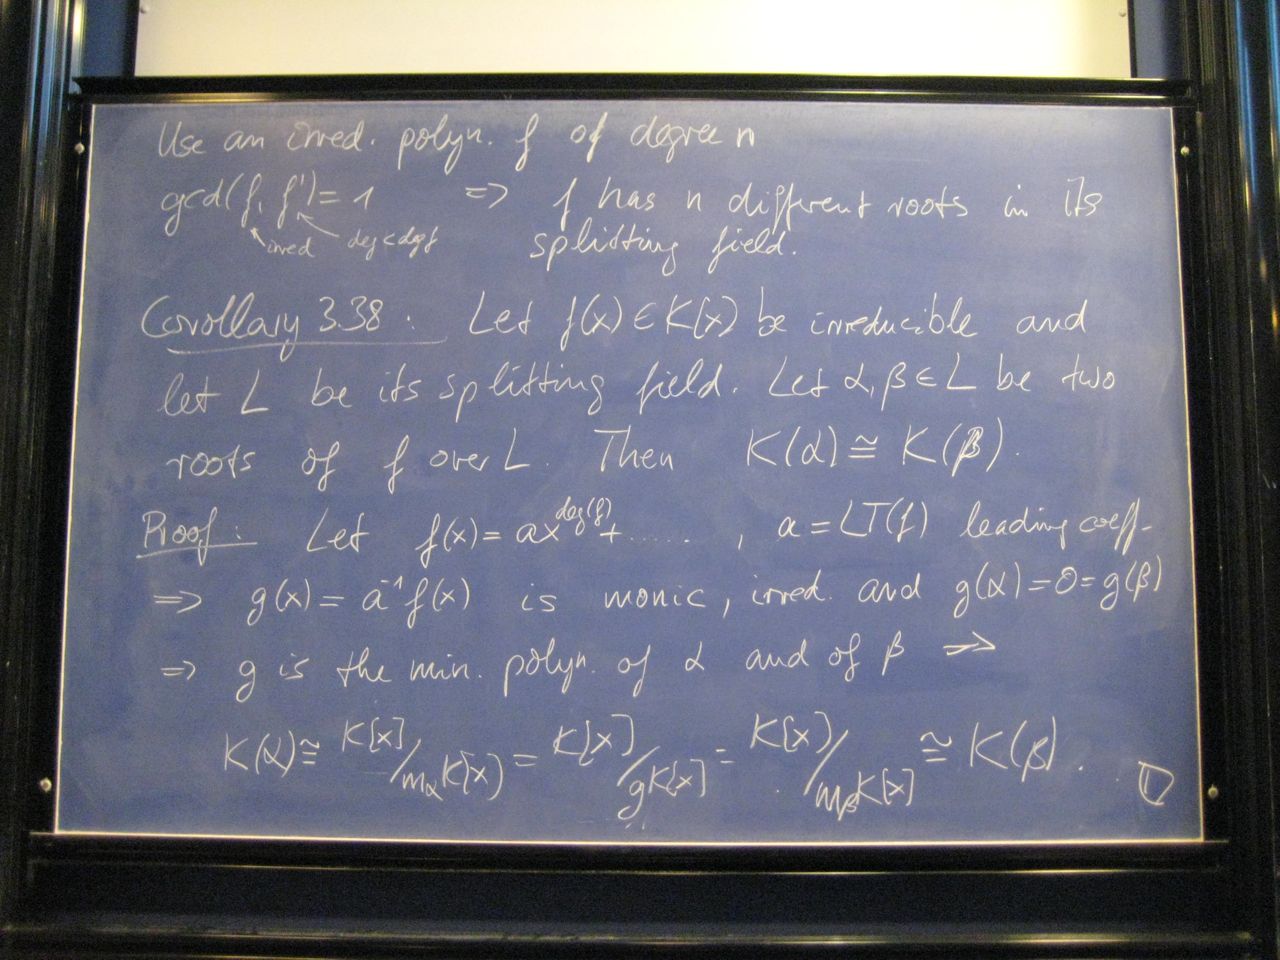 Use an irred. polyn. f of degree n
gcd(f, f') = 1 => f has n different roots in its
irred deg < deg f splitting field.
Corollary 3.38: Let f(x) ∈ K[x] be irreducible and
let L be its splitting field. Let α, β ∈ L be two
roots of f over L. Then K(α) ≅ K(β).
Proof: Let f(x) = ax^deg(f) + ......, a = LT(f) leading coeff.
=> g(x) = a⁻¹f(x) is monic, irred. and g(α) = 0 = g(β)
=> g is the min. polyn. of α and of β =>
K(α) ≅ K[x]/m_α K[x] = K[x]/gK[x] = K[x]/m_β K[x] ≅ K(β).